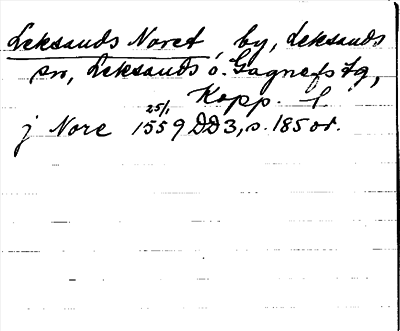 Leksands Noret, by, Leksands
sn, Leksands o. Gagnefs tg,
Kopp. l
j Nore 25/1 1559 DD3, s. 185 or.